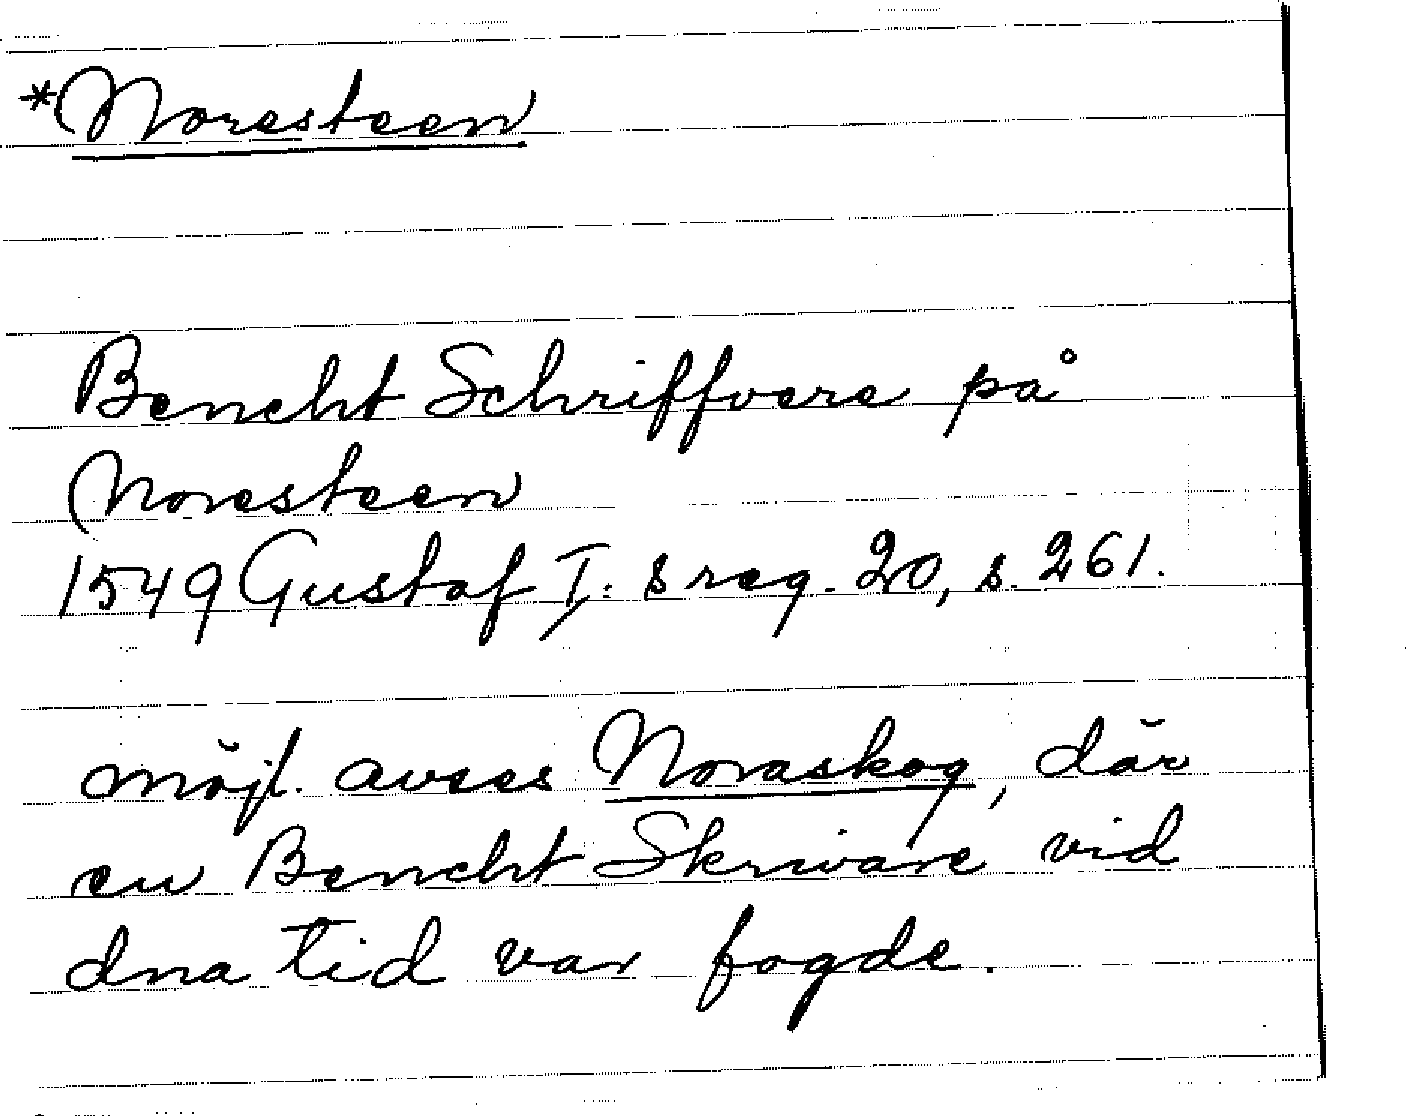 *Noresteen
Bencht Schriffvere på
Noresteen
1549 Gustaf I:s reg. 20, s. 261.
möjl. avses Noraskog, där
en Bencht Skrivare vid
dna tid var fogde.